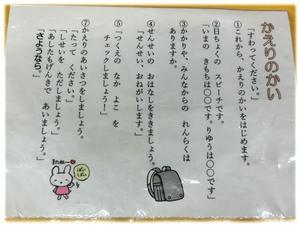 かえりのかい
「すわってください。」
①これから、かえりのかいをはじめます。
②日ちょくの スピーチです。
「いまの きもちは○○です。りゆうは○○です」
③かかりや、みんなからの れんらくは
ありますか。
④せんせいの おはなしをききましょう。
「せんせい、おねがいします。」
⑤「つくえの なか よこ を
チェックしましょう！」
⑦かえりのあいさつをしましょう。
「たってください。」
「しせいを ただしましょう。」
「あしたもげんきで あいましょう。」
「さようなら。」
またねー
ばいばい